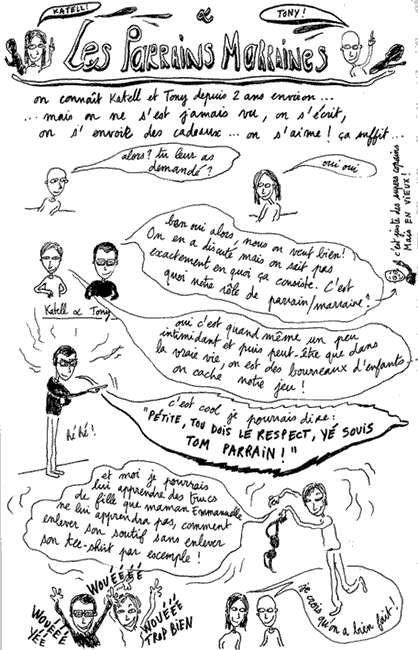 KATELL !
&
TONY !
LES PARRAINS MARRAINES
on connaît Katell et Tony depuis 2 ans environ...
... mais on ne s'est jamais vu, on s'écrit,
on s'envoie des cadeaux ... on s'aime ! ça suffit ...
alors ? tu leur as
demandé ?
oui oui
c'est juste des supers copains
MAIS EN VIEUX !
ben oui alors, nous on veut bien !
On en a discuté mais on sait pas
exactement en quoi ça consiste. C'est
quoi notre rôle de
parrain/marraine ?
Katell & Tony
oui c'est quand même un peu
intimidant et puis peut-être que dans
la vraie vie, on est des bourreaux d'enfants
on cache notre jeu !
hé hé !
c'est cool je pourrais dire :
"PETITE, TOU DOIS LE RESPECT, YÉ SOUIS
TOM PARRAIN !"
et moi je pourrais
lui apprendre des trucs
de fille que maman Emmanuelle
ne lui apprendra pas, comment
enlever son soutif sans enlever
son tee-shirt par exemple !
WOUÉÉÉÉ
WOUÉÉÉ
YÉE
WOUÉÉÉ
TROP BIEN
je crois
qu'on a bien fait !